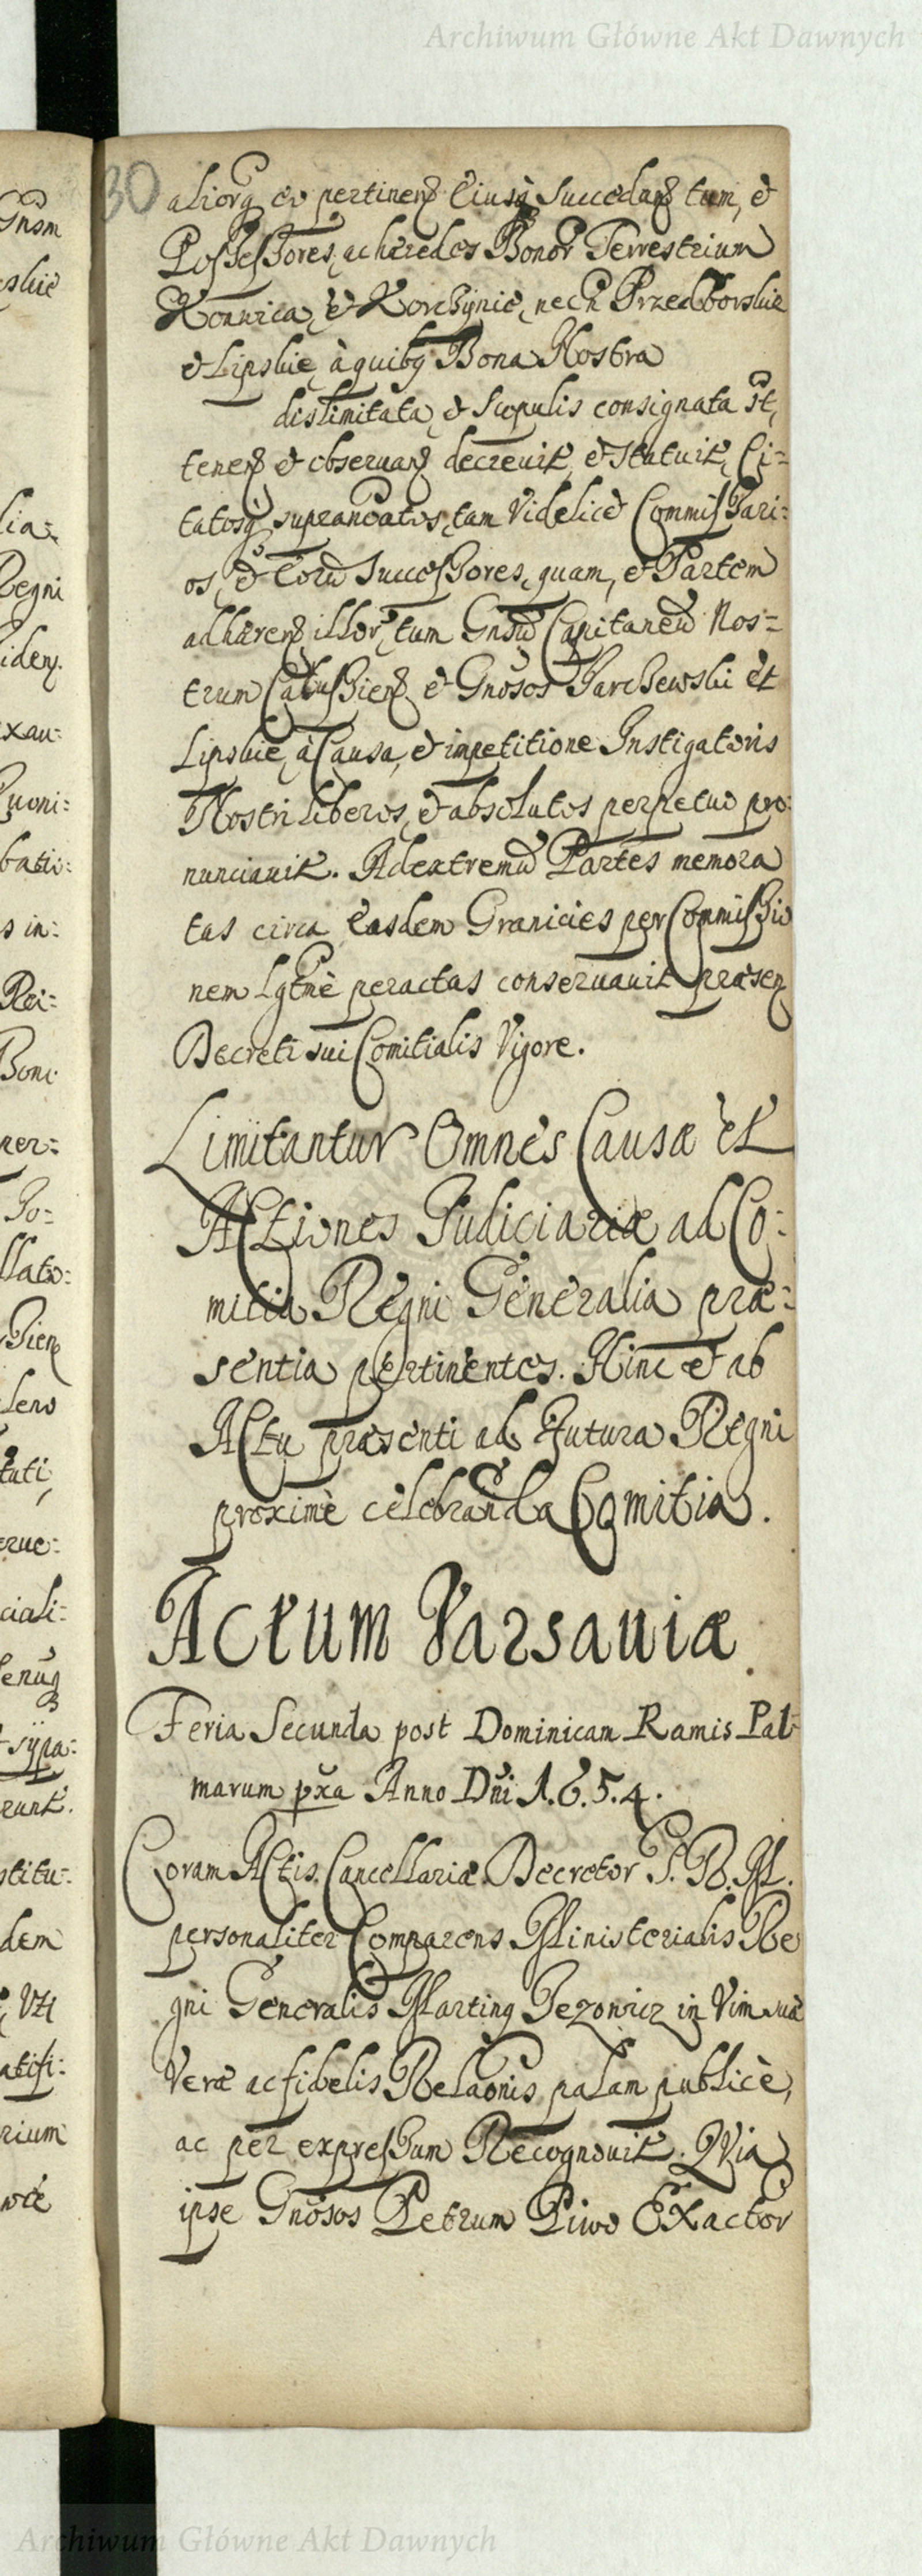 Archiwum Główne Akt Dawnych
30
aliorq; eo pertinen Eiusq; Succedan tum, et
Possessores, ac hæredes Bonor Terrestrium
Konnica, et Korchynie, nech Przedborskie
et Lipskie à quibq Bona Nostra
dislimitata, et Scopulis consignata st,
tenen et observan decrevit, et statuit, Ci=
tatosq supranoatos, tam Videlicet Commissari=
os, et Eorū Successores, quam, et Partem
adhæren illor, tum Gnsū Capitaneū Nos=
trum Calussien et Gnosos Parchewski et
Lipskie, à Causa, et impetitione Instigatoris
Nostri liberos, et absolutos perpetuo pro=
nunciavit. Ad extremū Partes memora
tas circa easdem Granicies per Commissio
nem Lgtmè peractas conservavit præsen
Decreti sui Comitialis Vigore.
Limitantur Omnes Causæ et
Actiones Judiciariæ ad Co=
mitia Regni Generalia præ=
sentia pertinentes. Hinc et ab
Actu præsenti ad Futura Regni
proximè celebranda Comitia.
Actum Varsaviæ
Feria Secunda post Dominicam Ramis Pal=
marum pxa Anno Dñi 1.6.5.4.
Coram Actis Cancellariæ Decretor S. R. M.
personaliter Comparens Ministerialis Re
gni Generalis Martinq Jezowicz in Vim suæ
Veræ ac fidelis Relaonis palam publicè,
ac per expressum Recognovit. Quia
ipse Gnosos Petrum Piwo Exactor
Gnsm
skie
lia=
Regni
iden
xau=
Quoni=
bati=
s in=
Rei=
Boni
ner=
Po=
llato=
lens
tuti,
erue=
ciali=
sypa=
runt.
stitu=
dem
Vti
atisi=
rium
Archiwum Główne Akt Dawnych